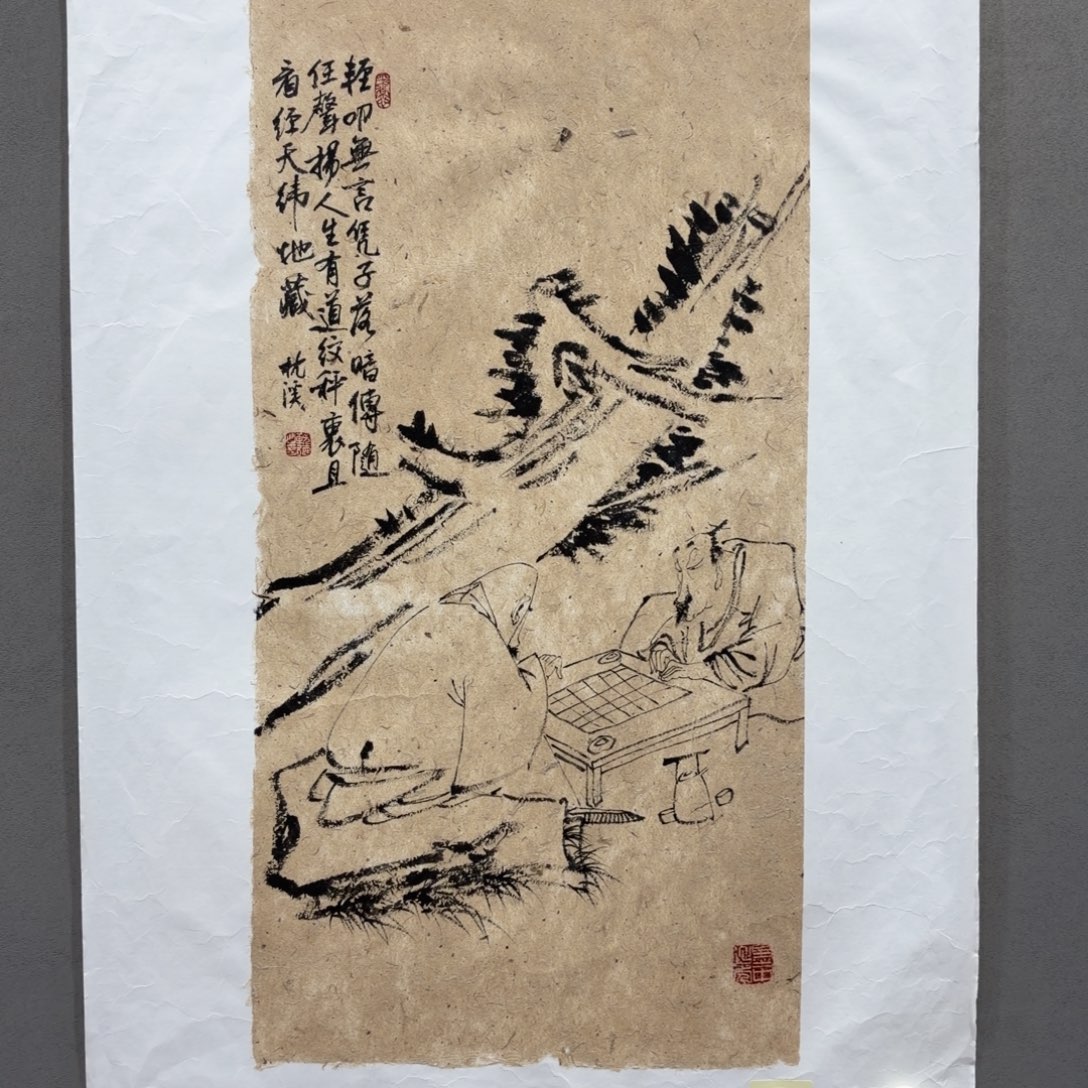 輕叩無言凭子落暗傳随
任聲揚人生有道紋秤裏且
看經天緯地藏
枕溪